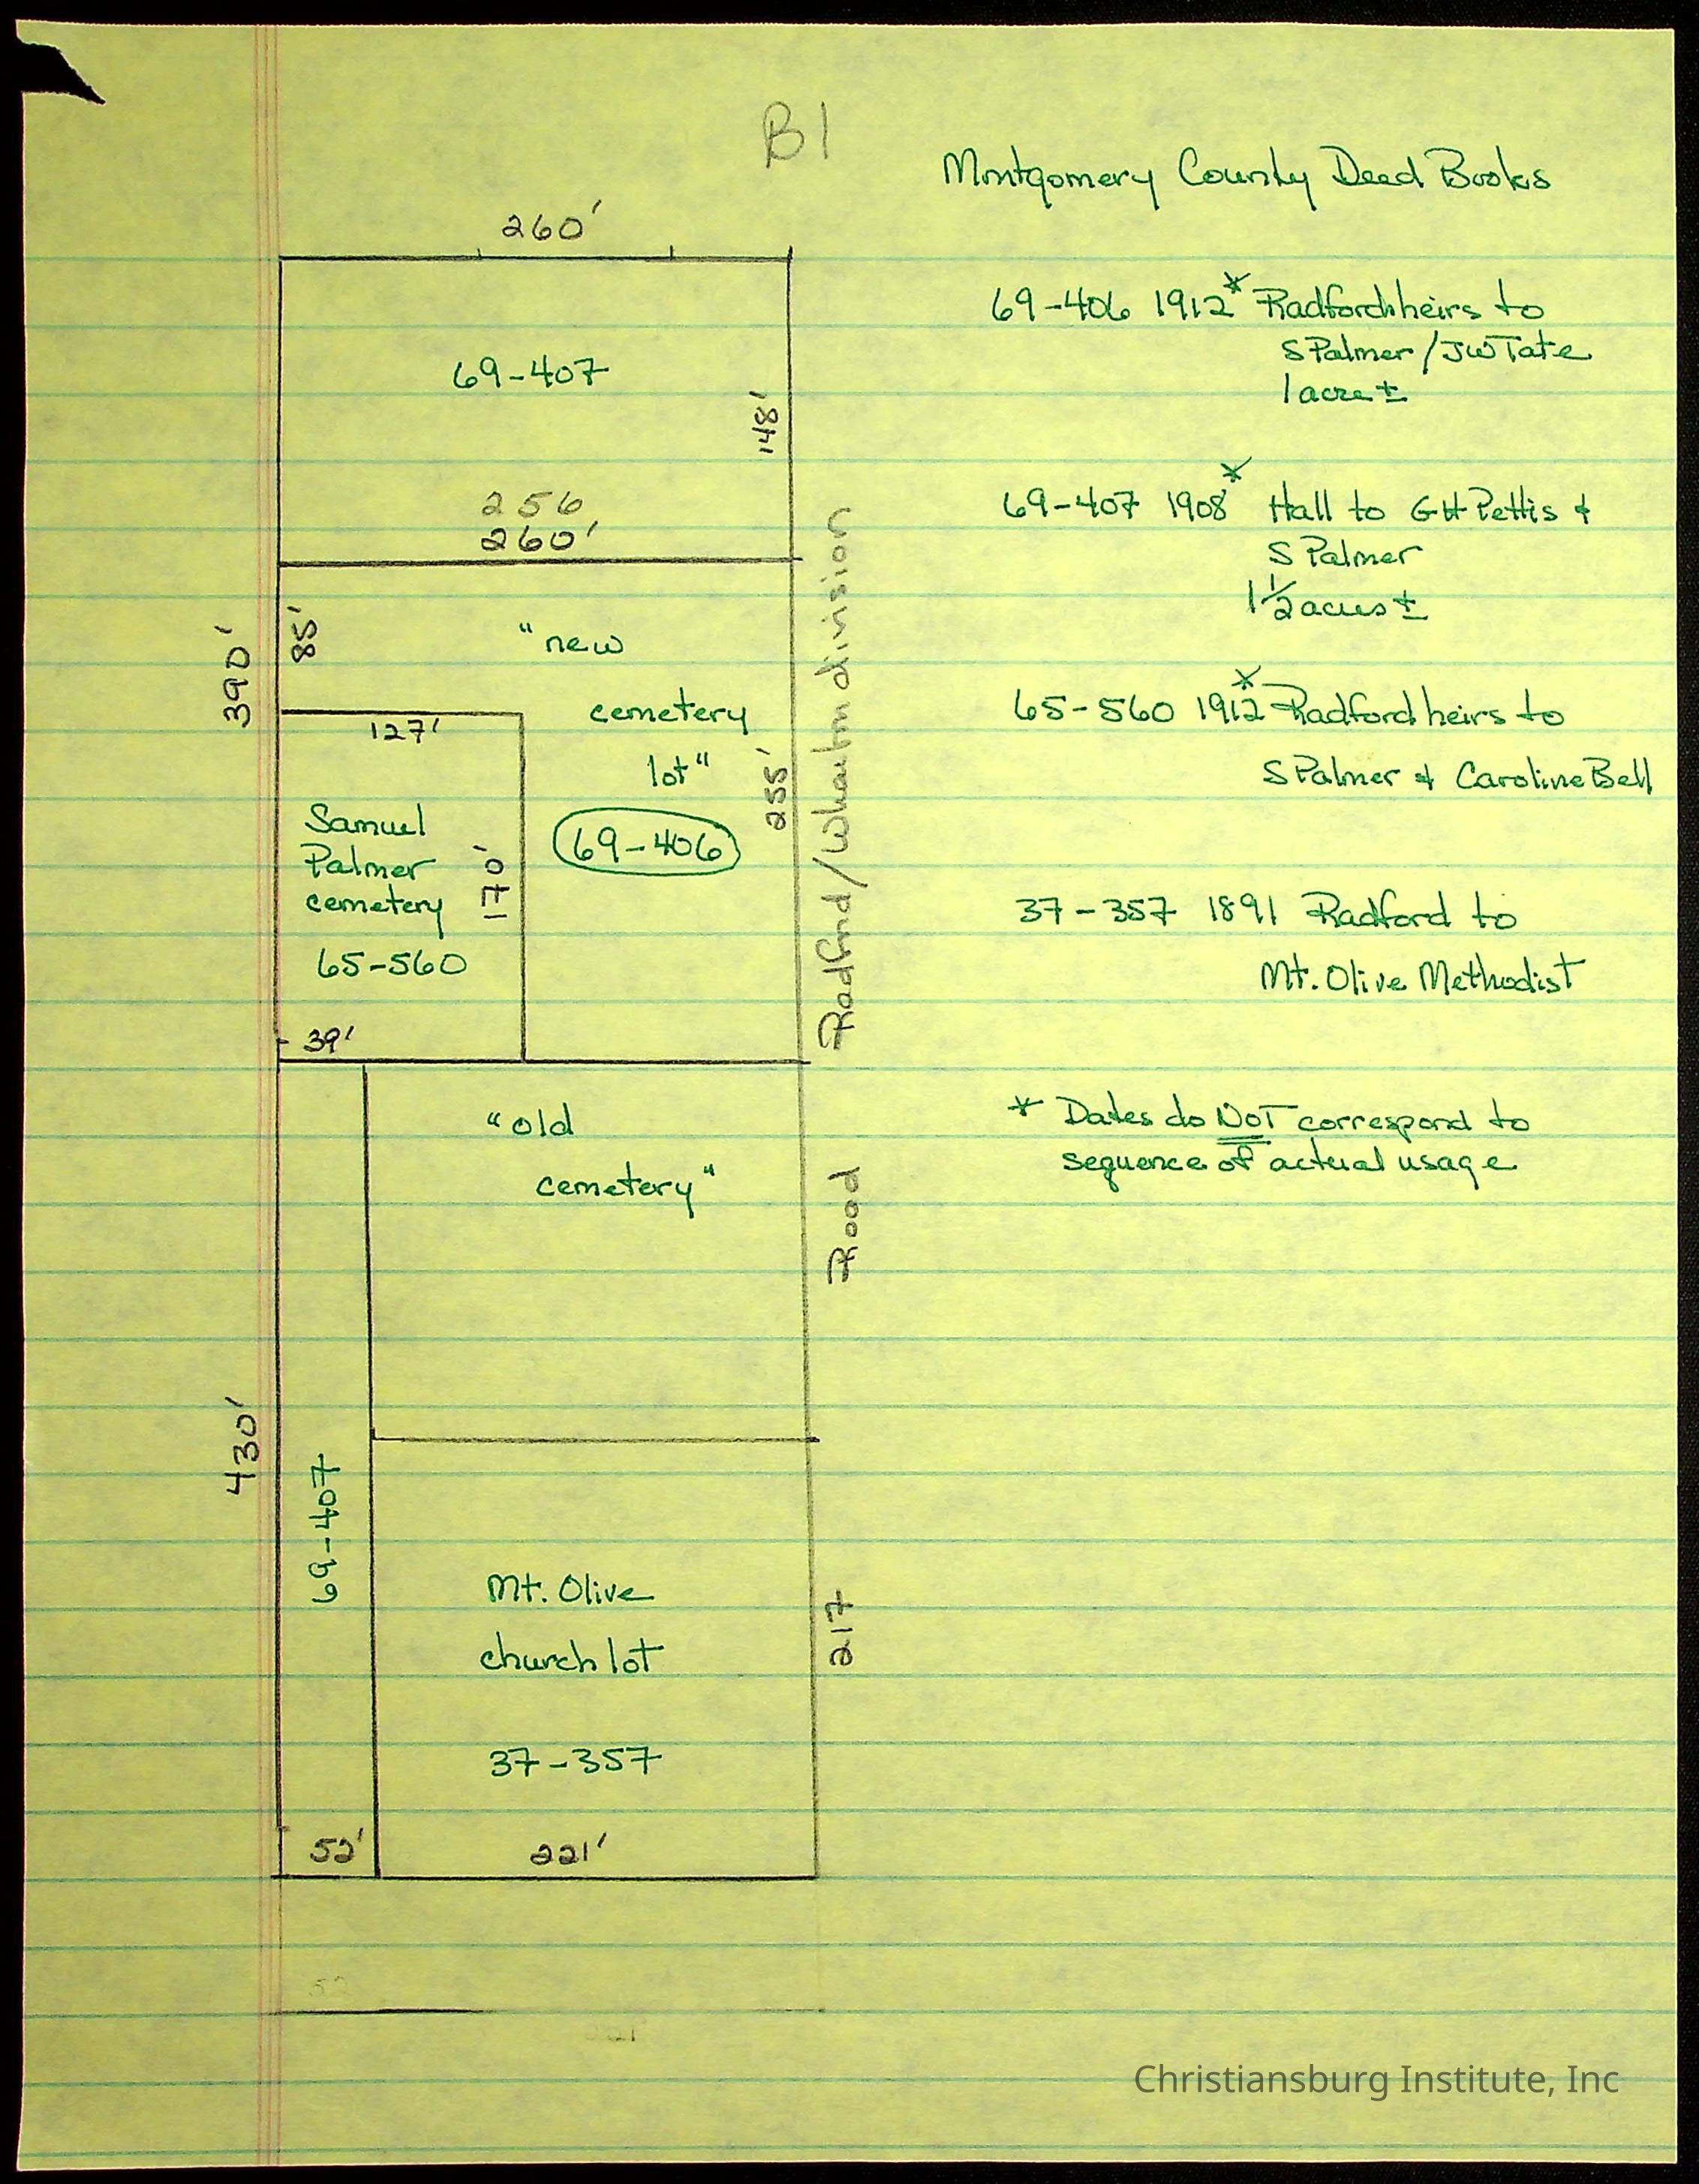 B1
Montgomery County Deed Books
260'
69-407
148'
256
260'
390'
85'
"new
cemetery
lot"
69-406
127'
255'
Samuel
Palmer
cemetery
65-560
170'
39'
Radford/Wharton division
"old
cemetery"
Road
430'
69-407
Mt. Olive
church lot
37-357
217
52'
221'
52
69-406 1912* Radford heirs to
S Palmer / JW Tate
1 acre ±
69-407 1908* Hall to GH Pettis &
S Palmer
1 1/2 acres ±
65-560 1912* Radford heirs to
S Palmer & Caroline Bell
37-357 1891 Radford to
Mt. Olive Methodist
* Dates do NOT correspond to
sequence of actual usage
Christiansburg Institute, Inc